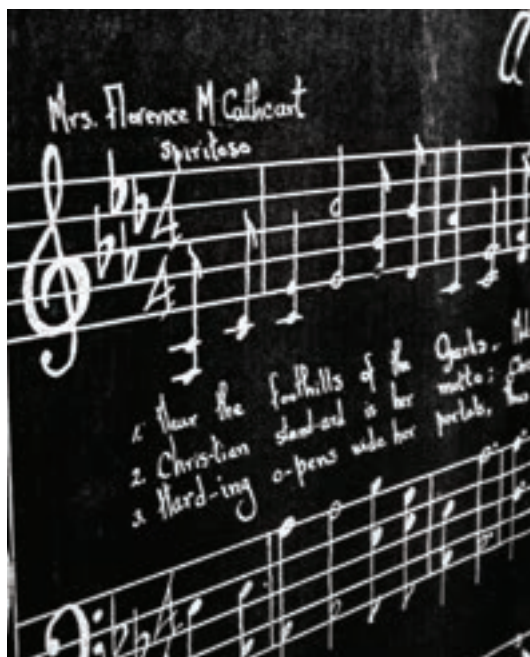 Mrs. Florence M. Cathcart
Spiritoso
4
4
1. Near the foothills of the Ozarks,
2. Chris-tian stand-ard is her motto;
3. Hard-ing o-pens wide her portals,
4